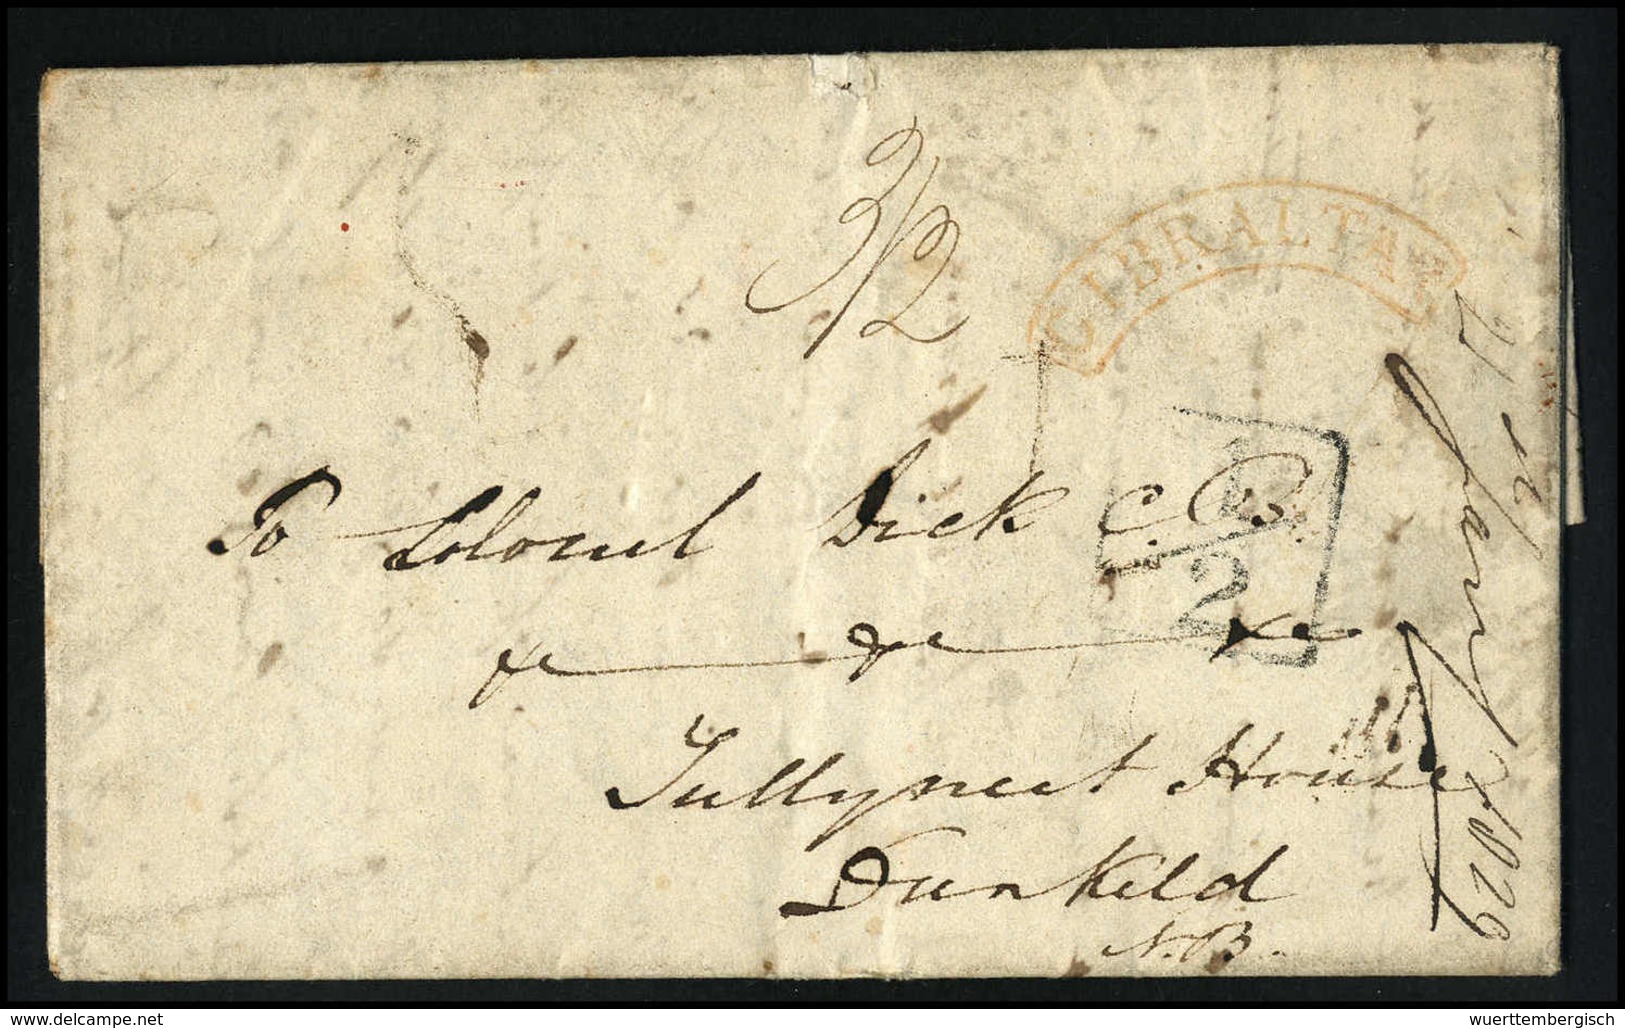 3/2
GIBRALTAR
To Colonel Dick C.B.
1/2
&c &c &c
Tullymeet House
Dunkeld
N.B.
Jany 1829
www.delcampe.net
wuerttembergisch